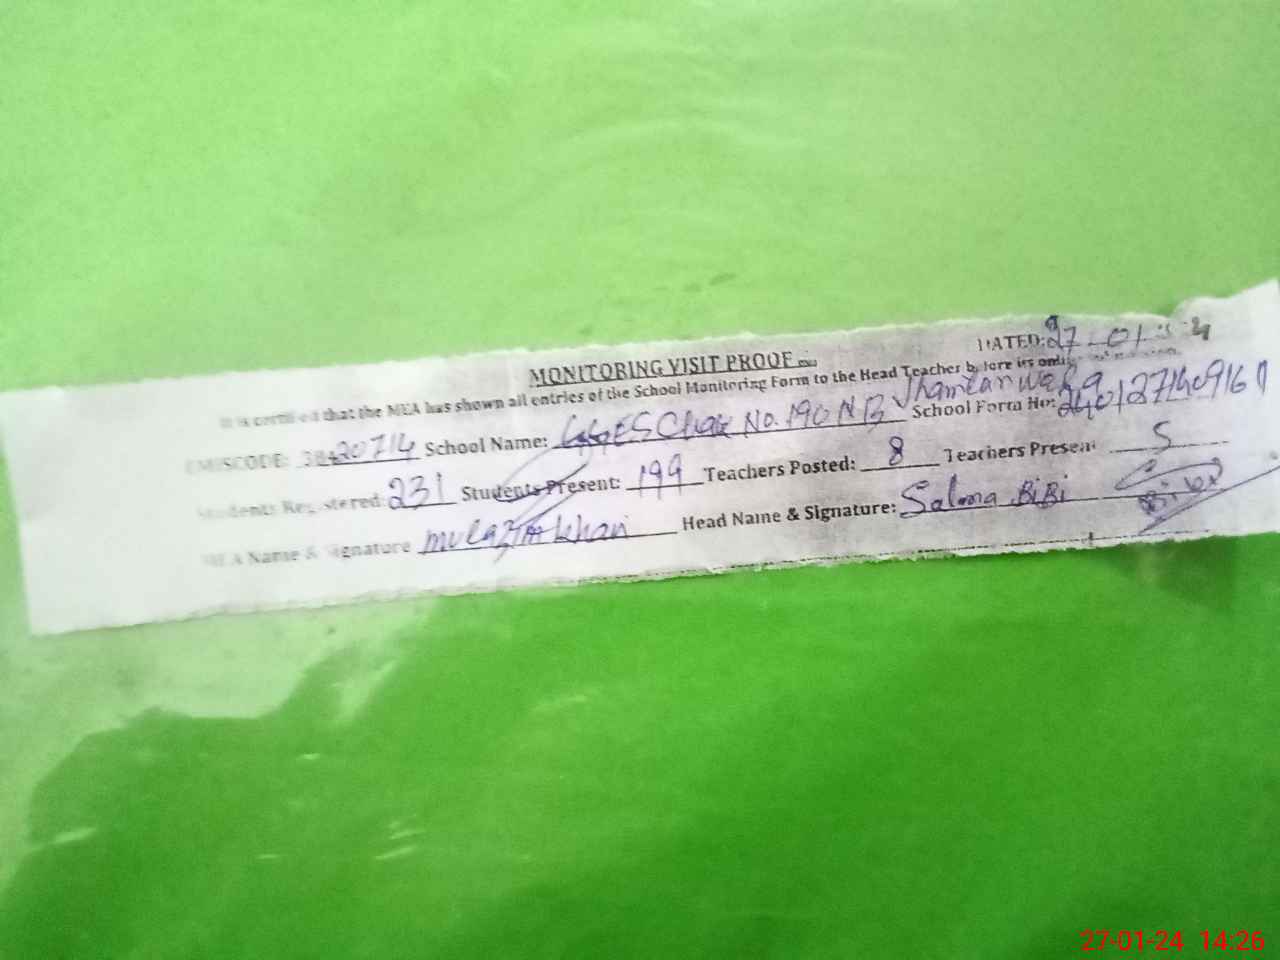 MONITORING VISIT PROOF
DATED: 27-01-24
It is certified that the MEA has shown all entries of the School Monitoring Form to the Head Teacher before its
EMISCODE: 38420714 School Name: GGES Chak No. 190 NB Jhamlanwala School Form No: 240127140916
Students Registered: 231 Students Present: 199 Teachers Posted: 8 Teachers Present 5
MEA Name & Signature mulazim khan Head Name & Signature: Salma BiBi
27-01-24 14:26